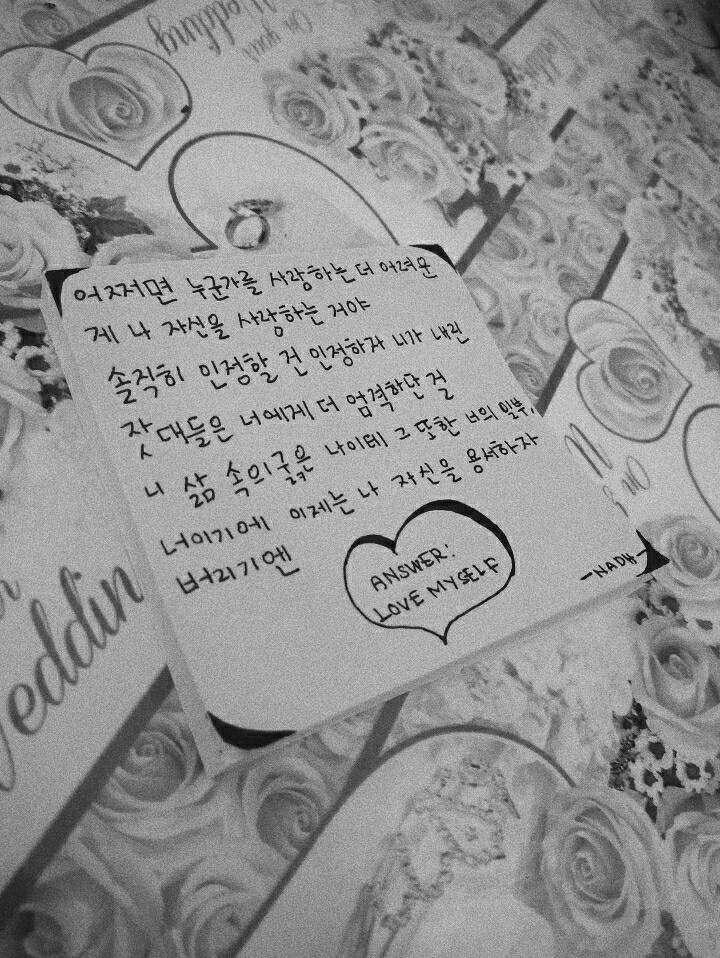 On your
Wedding
어쩌면 누군가를 사랑하는 더 어려운
게 나 자신을 사랑하는 거야
솔직히 인정할 건 인정하자 니가 내린
잣대들은 너에게 더 엄격하단 걸
니 삶 속의 굵은 나이테 그 또한 너의 일부,
너이기에 이제는 나 자신을 용서하자
버리기엔
ANSWER:
LOVE MYSELF
-NADH-
Weddin